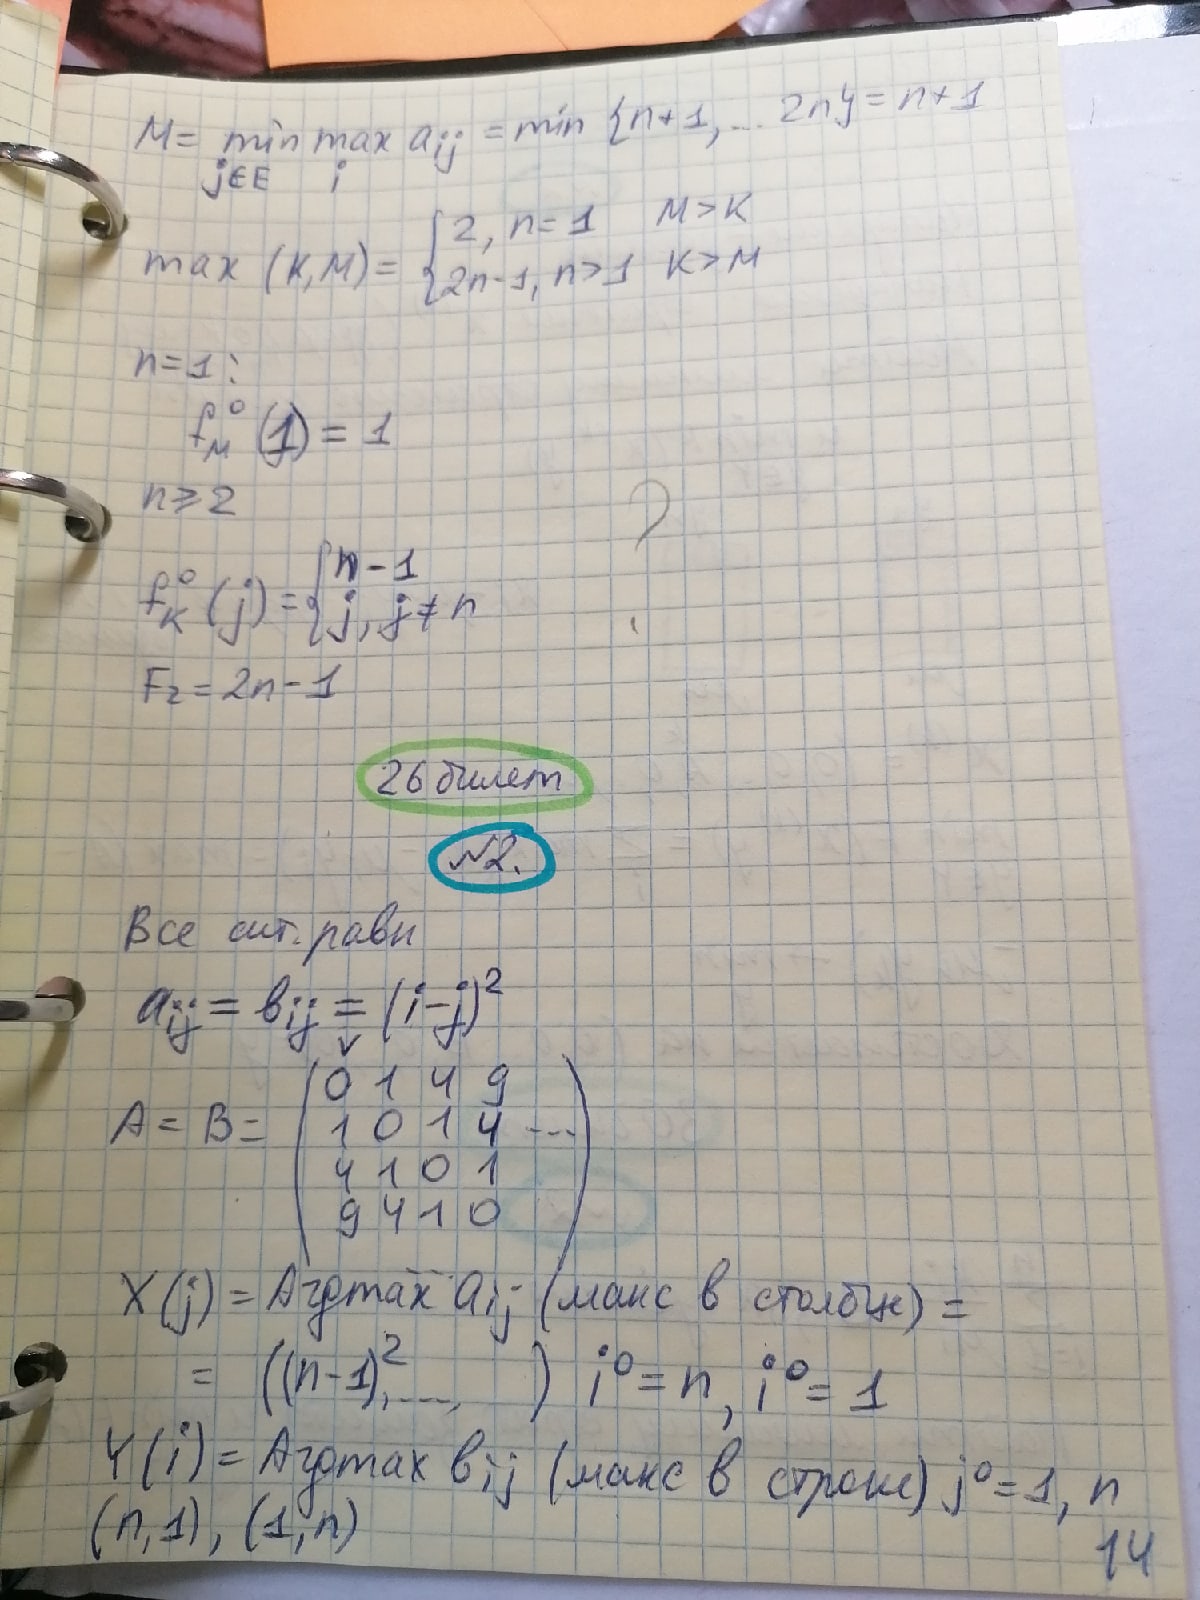 M = min max aij = min {n+1, ... 2n} = n+1
j∈E i
max (K,M) = { 2, n=1 M>K
2n-1, n>1 K>M
n=1:
f⁰м (1) = 1
n ≥ 2
?
f⁰к (j) = { n-1
j, j≠n
F₂ = 2n-1
26 билет
№2.
Все сит. равн
aij = bij = (i-j)²
A = B = ( 0 1 4 9
1 0 1 4 ...
4 1 0 1
9 4 1 0 )
X(j) = Argmax aij (макс в столбце) =
= ((n-1)², ..., ) i⁰ = n, i⁰ = 1
Y(i) = Argmax bij (макс в строке) j⁰ = 1, n
(n,1), (1,n)
14